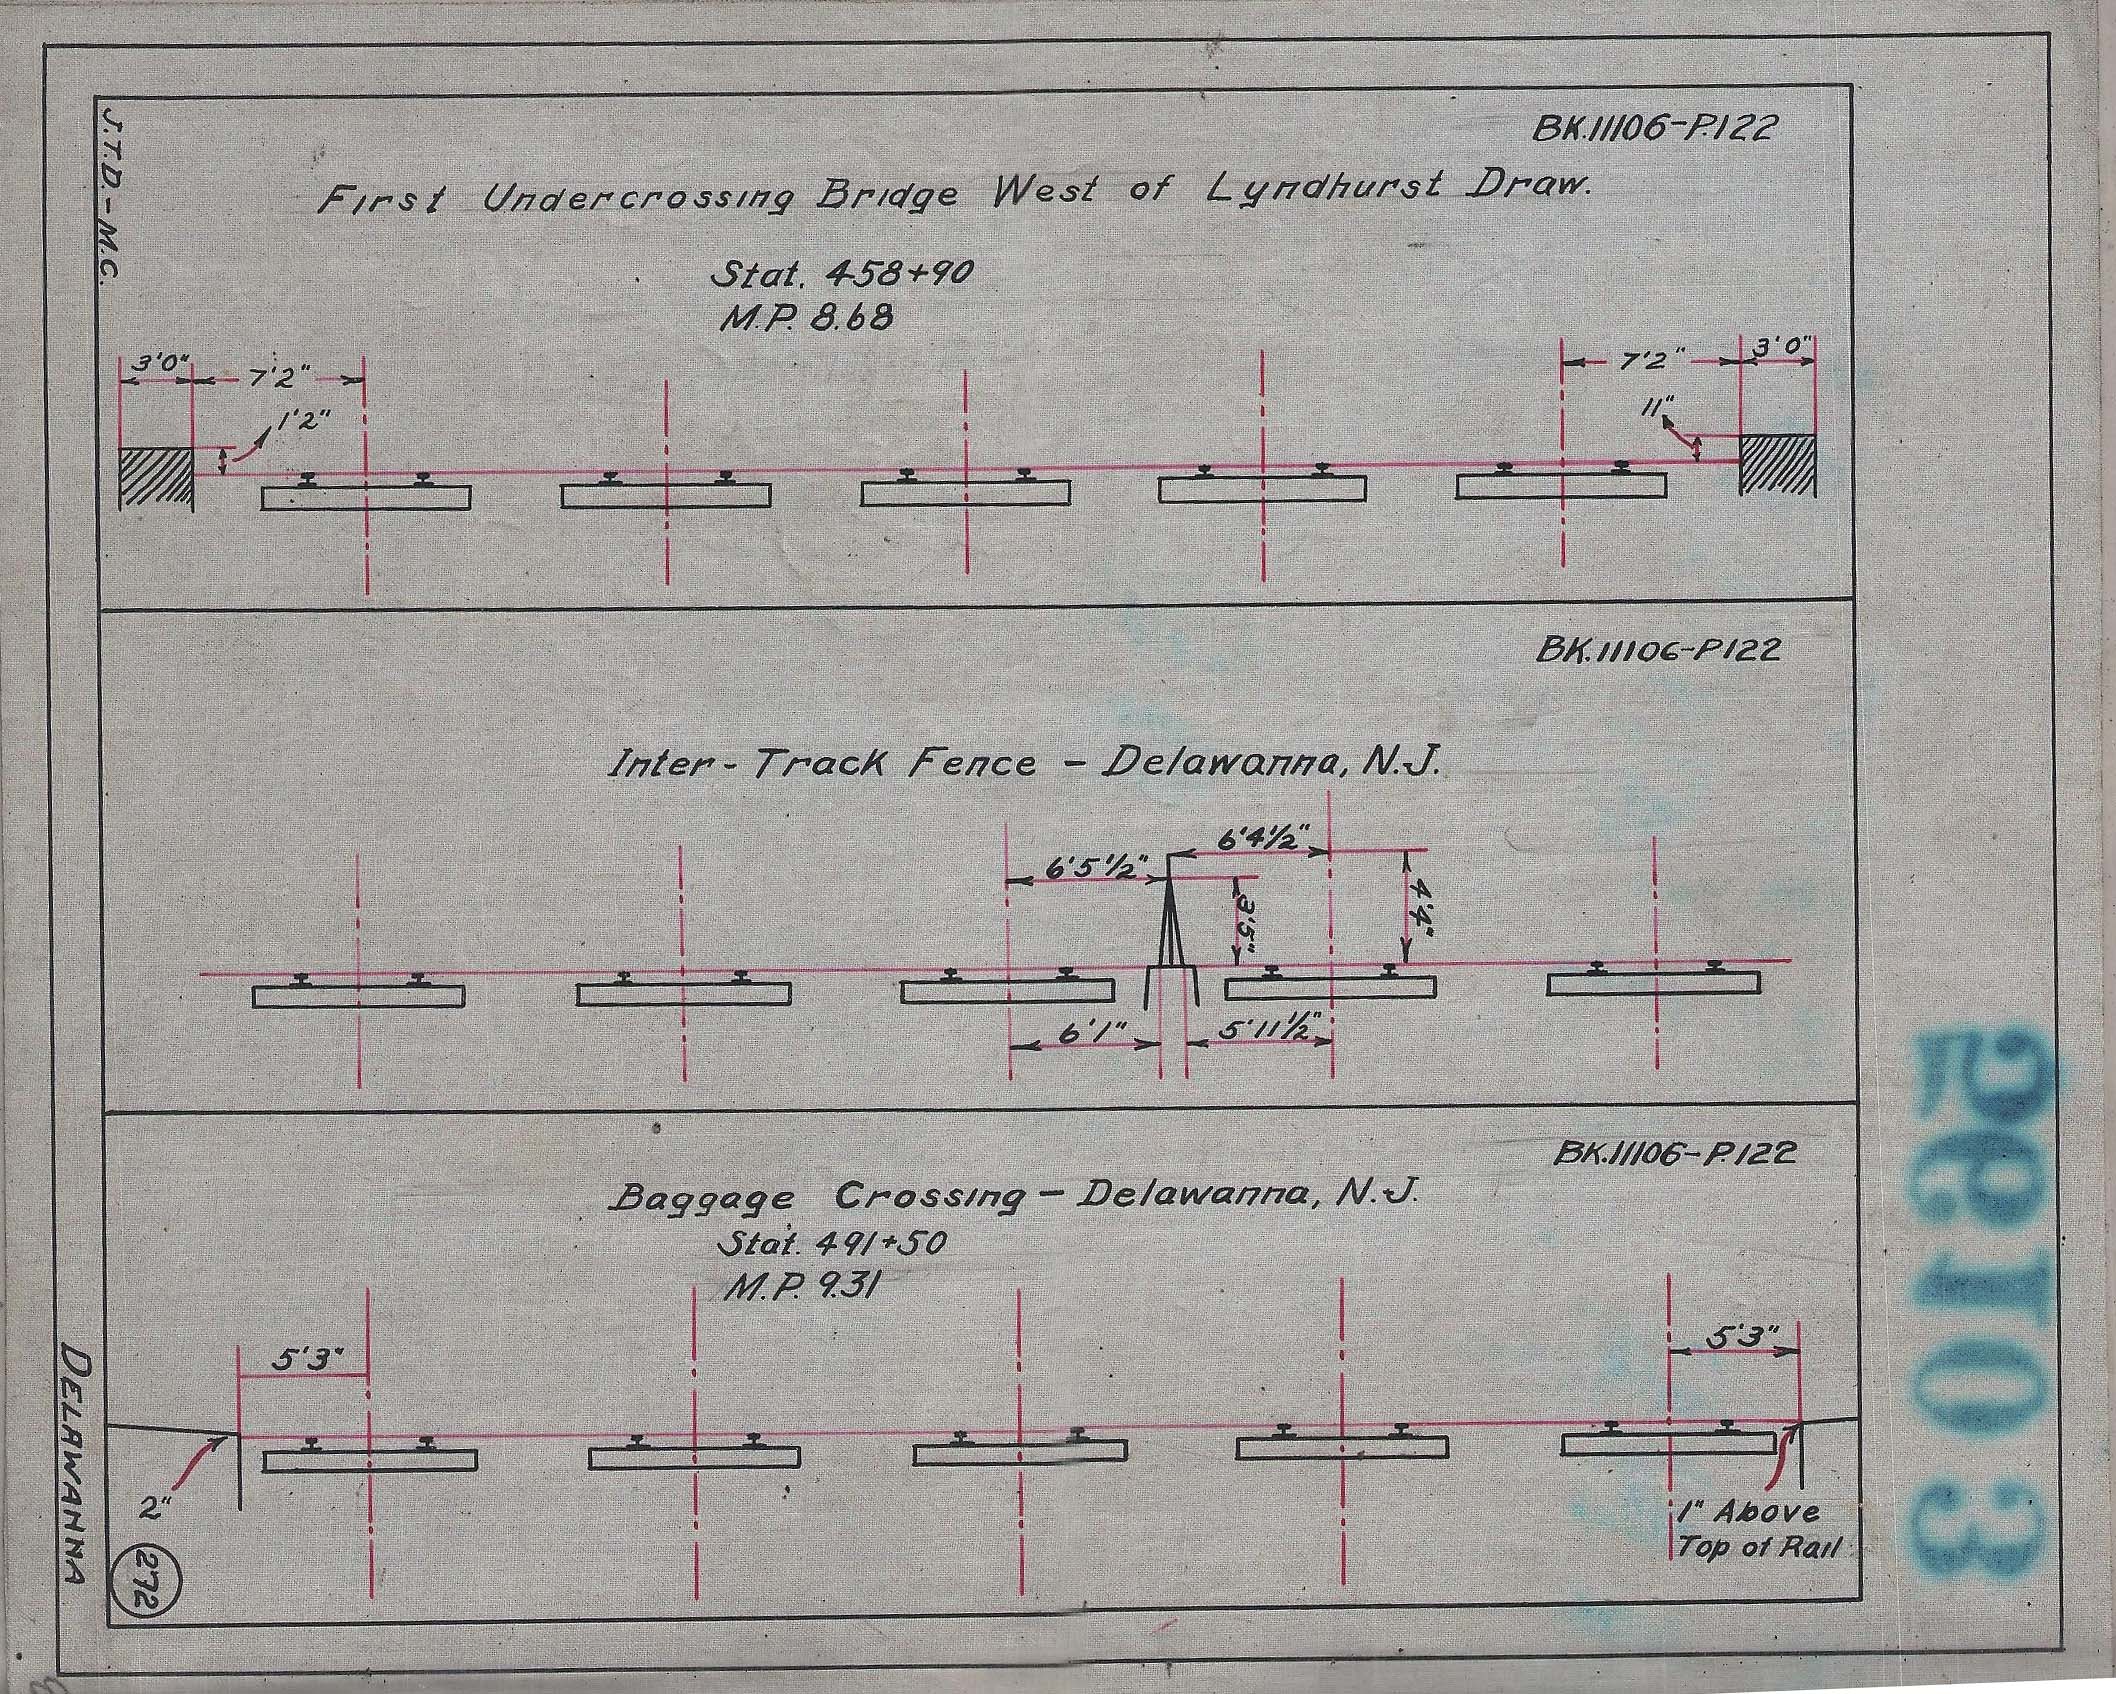 J.T.D.-M.C.
BK.11106-P.122
First Undercrossing Bridge West of Lyndhurst Draw.
Stat. 458+90
M.P. 8.68
3'0"
7'2"
1'2"
7'2"
3'0"
11"
BK.11106-P122
Inter-Track Fence - Delawanna, N.J.
6'5½"
6'4½"
3'5"
4'4"
6'1"
5'11½"
BK.11106-P.122
Baggage Crossing - Delawanna, N.J.
Stat. 491+50
M.P. 9.31
5'3"
5'3"
2"
1" Above
Top of Rail
272
DELAWANNA